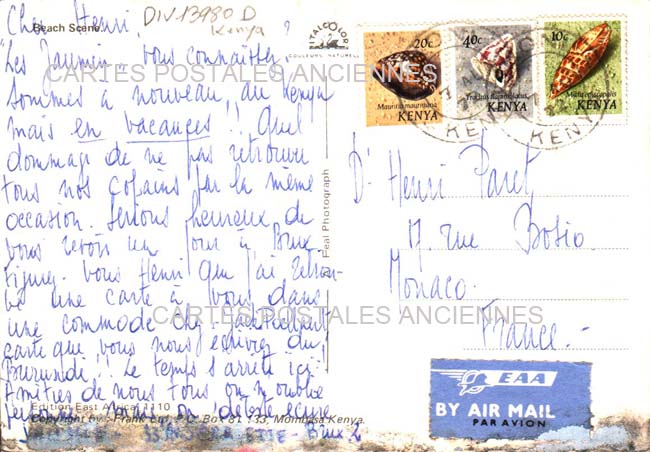 DIV 13980 D
Kenya
Beach Scene
ITALCOLOR
COULEUR NATUREL
Cher Henri,
Les Jaumin, vous connaissez ?
Sommes à nouveau au Kenya
mais en vacances !! Quel
dommage de ne pas retrouver
tous nos copains par la même
occasion. Serions heureux de
vous revoir un jour à Brux.
vous Henri que j'ai retrou-
vé une carte à vous dans
une commode chez
carte que vous nous du
Burundi !! Le temps s'arrête ici
Amitiés de nous tous on n'oublie
on déteste écrire
Brux 2
CARTES POSTALES ANCIENNES
CARTES POSTALES ANCIENNES
Edition East Africa 110
Copyright by: Frank P.O. Box 81 133, Mombasa Kenya
Real Photograph
20c
Mauritia mauritiana
KENYA
40c
Trochus flammulatus
KENYA
10c
Mitra episcopalis
KENYA
KENYA
Dr Henri Paret
17 rue Bosio
Monaco
France
EAA
BY AIR MAIL
PAR AVION